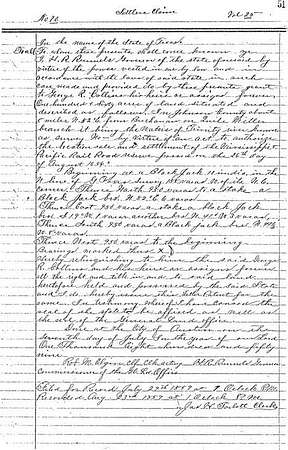 51
Settlers Claim
No 76 Vol 25
In the name of the State of Texas
To all whom these presents shall come known ye
I H. R. Runnels Governor of the state aforesaid by
virtue of the power vested in me by law and in
accordance with the laws of said state in such
case made and provided do by these presents grant
to George R. Collins his heirs or assigns forever
One hundred & sixty acres of land situated and
described as follows In Johnson County about
miles N 22° from Buchanan on
it being the Waters of Trinity river known
as survey No by virtue of an act to authorize
the location sale and settlement of the Mississippi
Pacific Rail Road reserve passed on the 26th day
of August 1856
Beginning at a Black Jack
W. line of J
corner Thence North 950 varas to a Stake a
Black Jack brs
Thence East 950 varas a stake a black Jack
brs S 19° W. 1 varas another brs N 41° W 3 varas
Thence South 950 varas a Black Jack brs
varas
Thence West 950 varas to the beginning
bearings marked thus X
Hereby relinquishing to him the said George
R. Collins and his heirs or assigns forever
all the right and title in and to said land
heretofore held and possessed by the said State
and I do hereby issue this letter Patent for the
same In testimony whereof I have caused the
seal of the state to be affixed as well as
the seal of the General Land office
Done at the City of Austin on the
Seventh day of July in the year of our Lord
One Thousand Eight hundred and fifty
nine
H R Runnels Governor
Commissioner of the Gl Ld Office
Filed for Record July 29th 1859 at 7 Oclock P.M.
Recorded Aug 23rd 1859 at 1 Oclock P.M.
Clerk